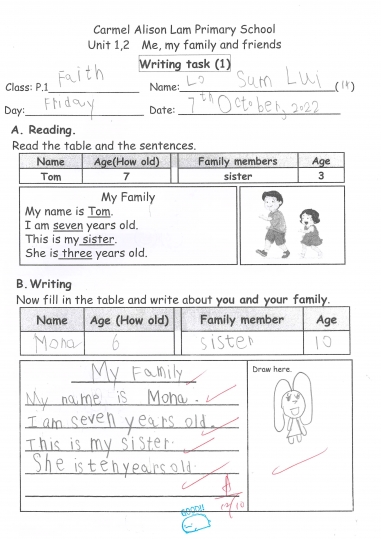 Carmel Alison Lam Primary School
Unit 1,2 Me, my family and friends
Writing task (1)
Class: P.1 Faith Name: Lo Sum Lui (14)
Day: Friday Date: 7th October, 2022
A. Reading.
Read the table and the sentences.
Name Age(How old) Family members Age
Tom 7 sister 3
My Family
My name is Tom.
I am seven years old.
This is my sister.
She is three years old.
B. Writing
Now fill in the table and write about you and your family.
Name Age (How old) Family member Age
Mona 6 sister 10
My Family
Draw here.
My name is Mona.
I am seven years old.
This is my sister.
She is ten years old.
A
10/10
GOOD!!